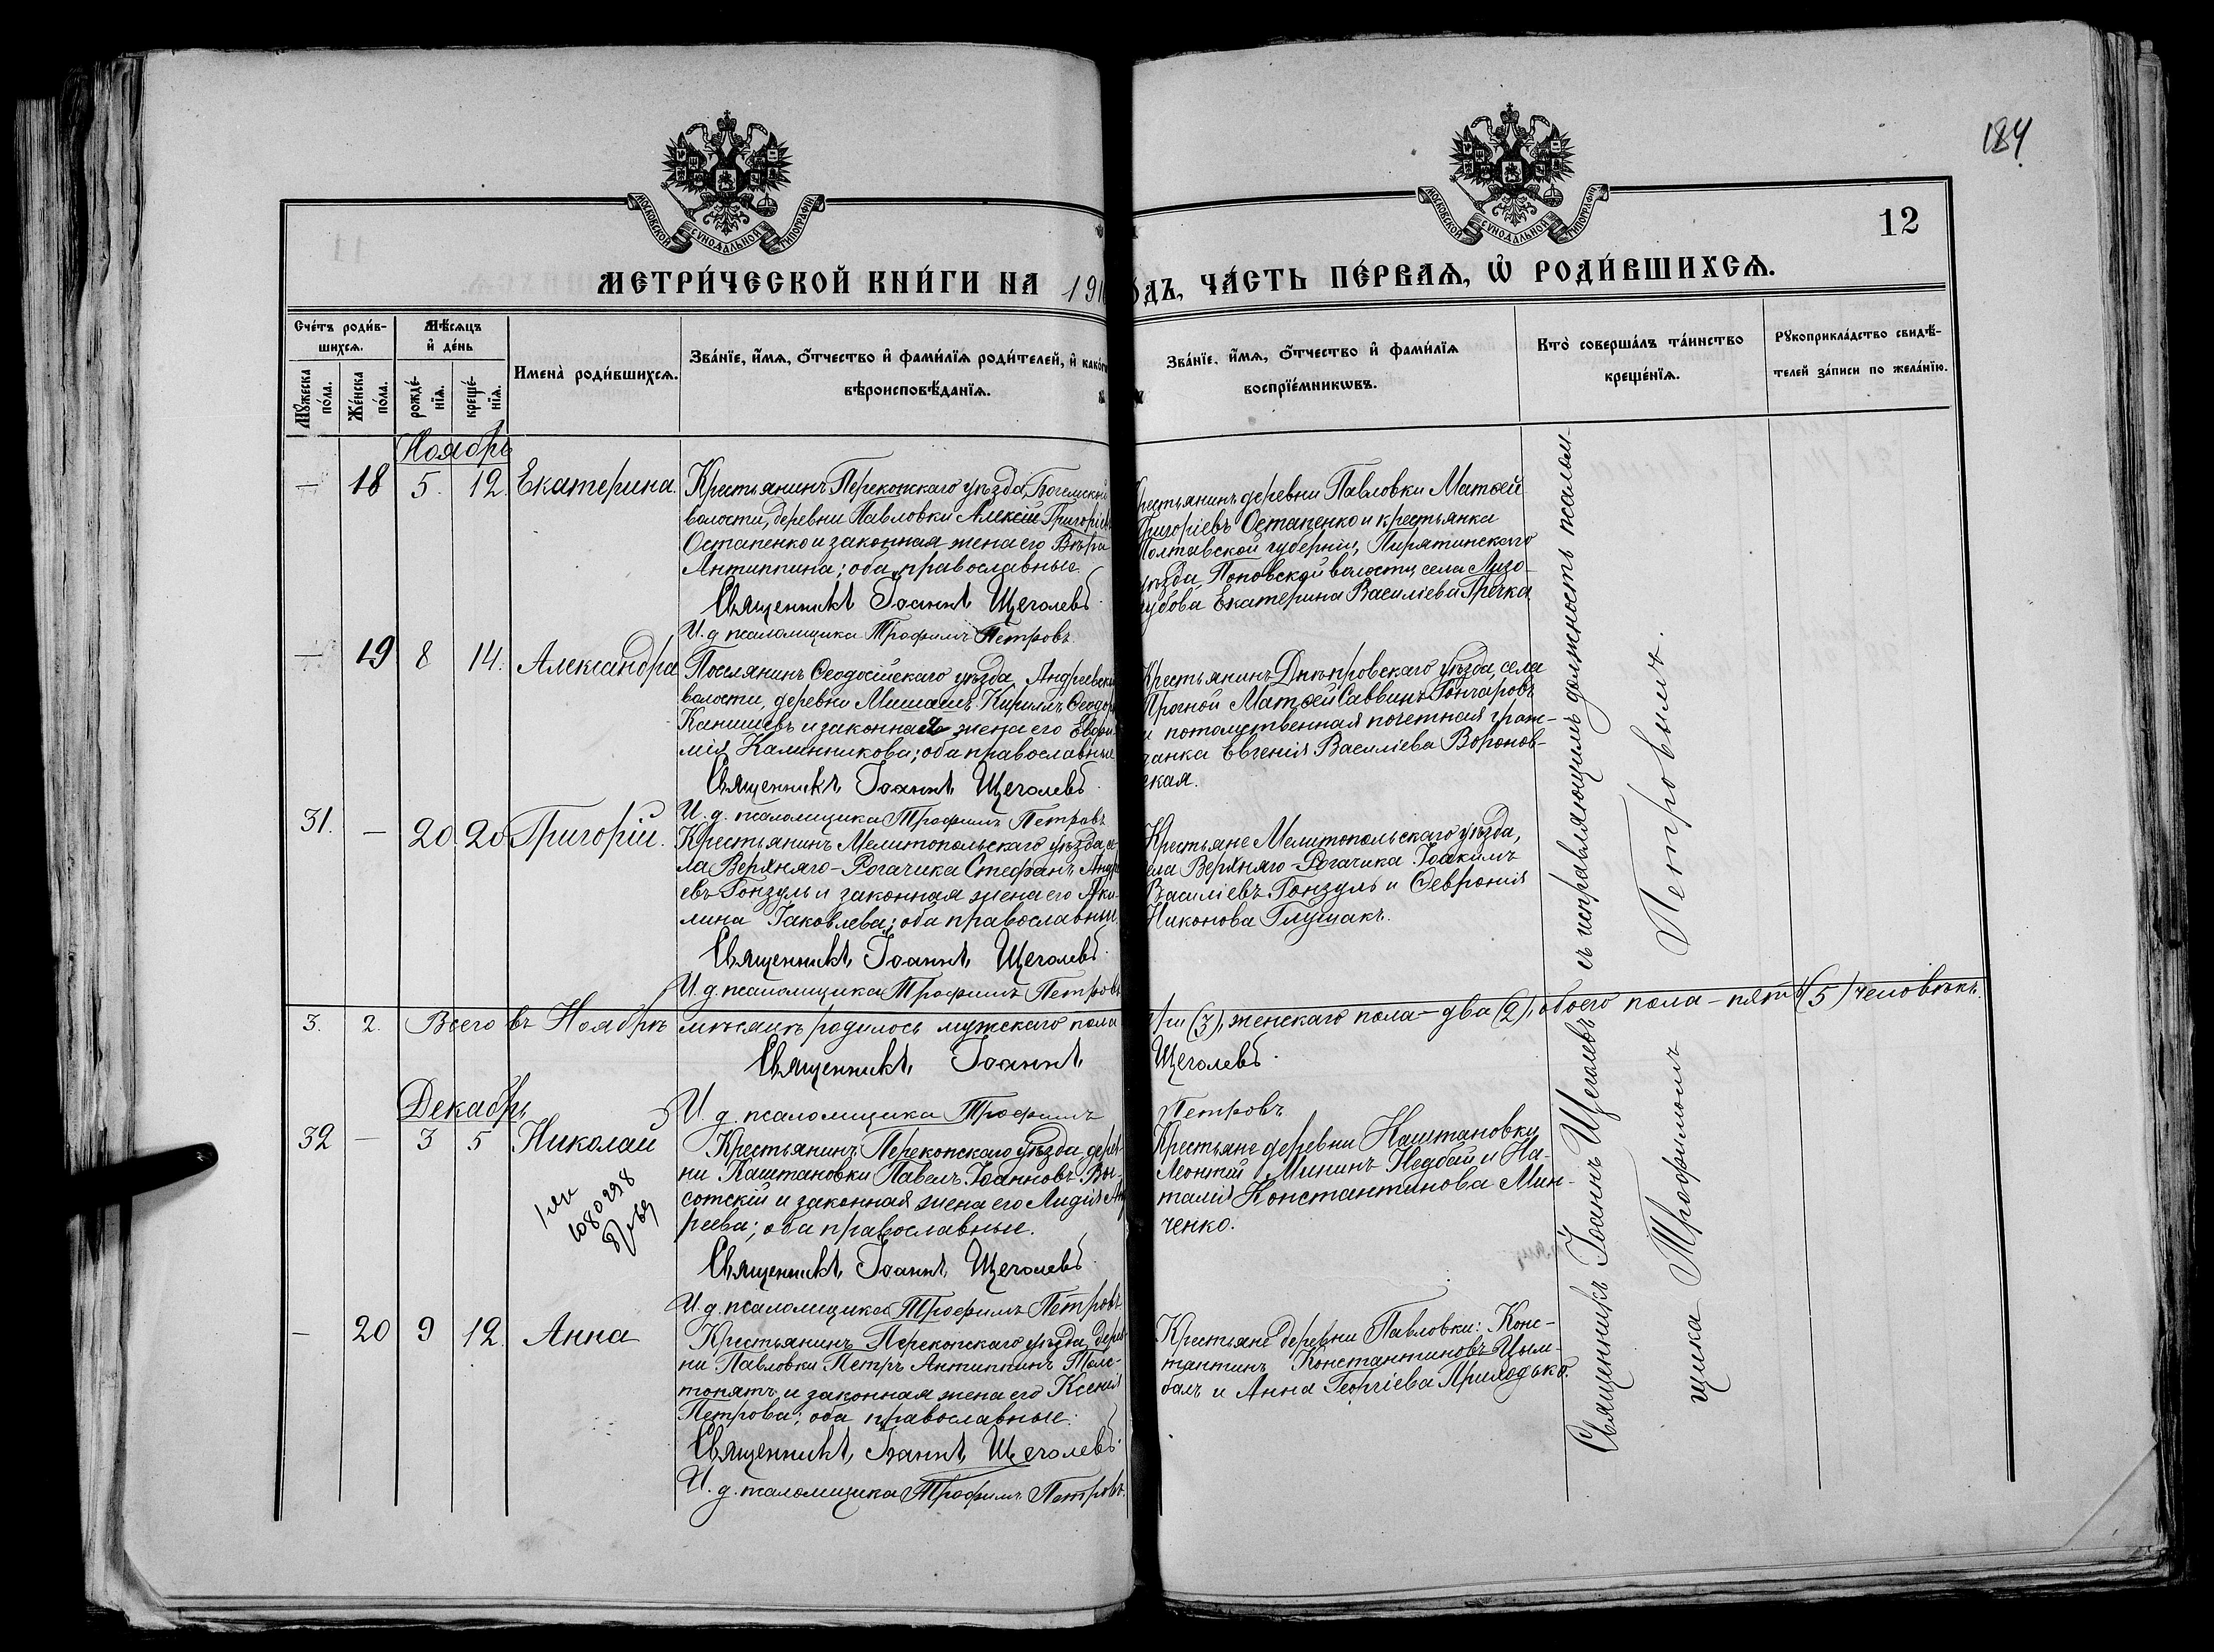 184
МОСКОВСКОЙ СѴНОДАЛЬНОЙ ТИПОГРАФІИ
МОСКОВСКОЙ СѴНОДАЛЬНОЙ ТИПОГРАФІИ
12
МЕТРИ́ЧЕСКОЙ КНИ́ГИ НА 191
ДЪ, ЧА́СТЬ ПЕ́РВАѦ, Ѡ҆ РОДИ́ВШИХСѦ.
Сче́тъ роди́в-
шихсѧ.
Мѣ́сѧцъ
и҆ де́нь
Мꙋ́жеска
по́ла.
Же́нска
по́ла.
рожде́-
нїѧ.
креще́-
нїѧ.
Имена̀ роди́вшихсѧ.
Зва́нїе, и҆́мѧ, ѻ҆́тчество и҆ фами́лїѧ роди́телей, и҆ како́г
вѣроисповѣ́данїѧ.
Зва́нїе, и҆́мѧ, ѻ҆́тчество и҆ фами́лїѧ
воспрїе́мникѡвъ.
Кто̀ соверша́лъ та́инство
креще́нїѧ.
Рꙋкоприкла́дство свидѣ́-
телей за́писи по жела́нїю.
Ноябрь
— 18 5. 12. Екатерина.
Крестьянинъ Перекопскаго уѣзда, Богемской
волости, деревни Павловки Алексій Григорьев
Остапенко и законная жена его Вѣра
Антиппина; оба православные.
Священникъ Іоаннъ Щеголевъ.
И. д. псаломщика Трофимъ Петровъ.
рестьянинъ деревни Павловки Матѳей
Григоріевъ Остапенко и крестьянка
Полтавской губерніи, Пирятинскаго
уѣзда, Поповской волости, села Лизо-
губова Екатерина Василіева Гречка
— 19 8 14. Александра
Поселянинъ Ѳеодосійскаго уѣзда, Андреевской
волости, деревни Мишашъ Кириллъ Ѳеодор
Канишевъ и законная жена его Евфи-
мія Калинникова; оба православные
Священникъ Іоаннъ Щеголевъ.
И. д. псаломщика Трофимъ Петровъ
Крестьянинъ Днѣпровскаго уѣзда, села
Прогной Матѳей Саввинъ Гончаровъ
и потомственная почетная граж-
данка Евгенія Василіева Воронов-
ская.
31. — 20. 20 Григорій.
Крестьянинъ Мелитопольскаго уѣзда, се-
ла Верхняго-Рогачика Стефанъ Андре
евъ Гонзуль и законная жена его Аки-
лина Іаковлева; оба православные.
Священникъ Іоаннъ Щеголевъ.
И. д. псаломщика Трофимъ Петровъ
Крестьяне Мелитопольскаго уѣзда,
села Верхняго-Рогачика Іоакимъ
Василіевъ Гонзуль и Ѳевронія
Никонова Глушакъ.
3. 2. Всего въ Ноябрѣ мѣсяцѣ родилось мужскаго пола
три (3), женскаго пола — два (2), обоего пола — пять (5) человѣкъ.
Священникъ Іоаннъ
Щеголевъ.
И. д. псаломщика Трофимъ
Петровъ
Декабрь
32 — 3 5 Николай
1080298
Крестьянинъ Перекопскаго уѣзда, дерев-
ни Каштановки Павелъ Іоанновъ Вы-
сотскій и законная жена его Лидія Анд
реева; оба православные.
Священникъ Іоаннъ Щеголевъ.
И. д. псаломщика Трофимъ Петровъ
Крестьяне деревни Каштановки
Леонтій Мининъ Недбай и На-
талія Константинова Мин-
ченко.
— 20 9 12. Анна
Крестьянинъ Перекопскаго уѣзда, дерев-
ни Павловки Петръ Антиппинъ Толс-
топятъ и законная жена его Ксенія
Петрова; оба православные.
Священникъ Іоаннъ Щеголевъ.
И. д. псаломщика Трофимъ Петровъ.
Крестьяне деревни Павловки: Конс-
тантинъ Константиновъ Цым-
балъ и Анна Георгіева Приходько.
Священникъ Іоаннъ Щеголевъ съ исправляющимъ должность псалом-
щика Трофимомъ Петровымъ.